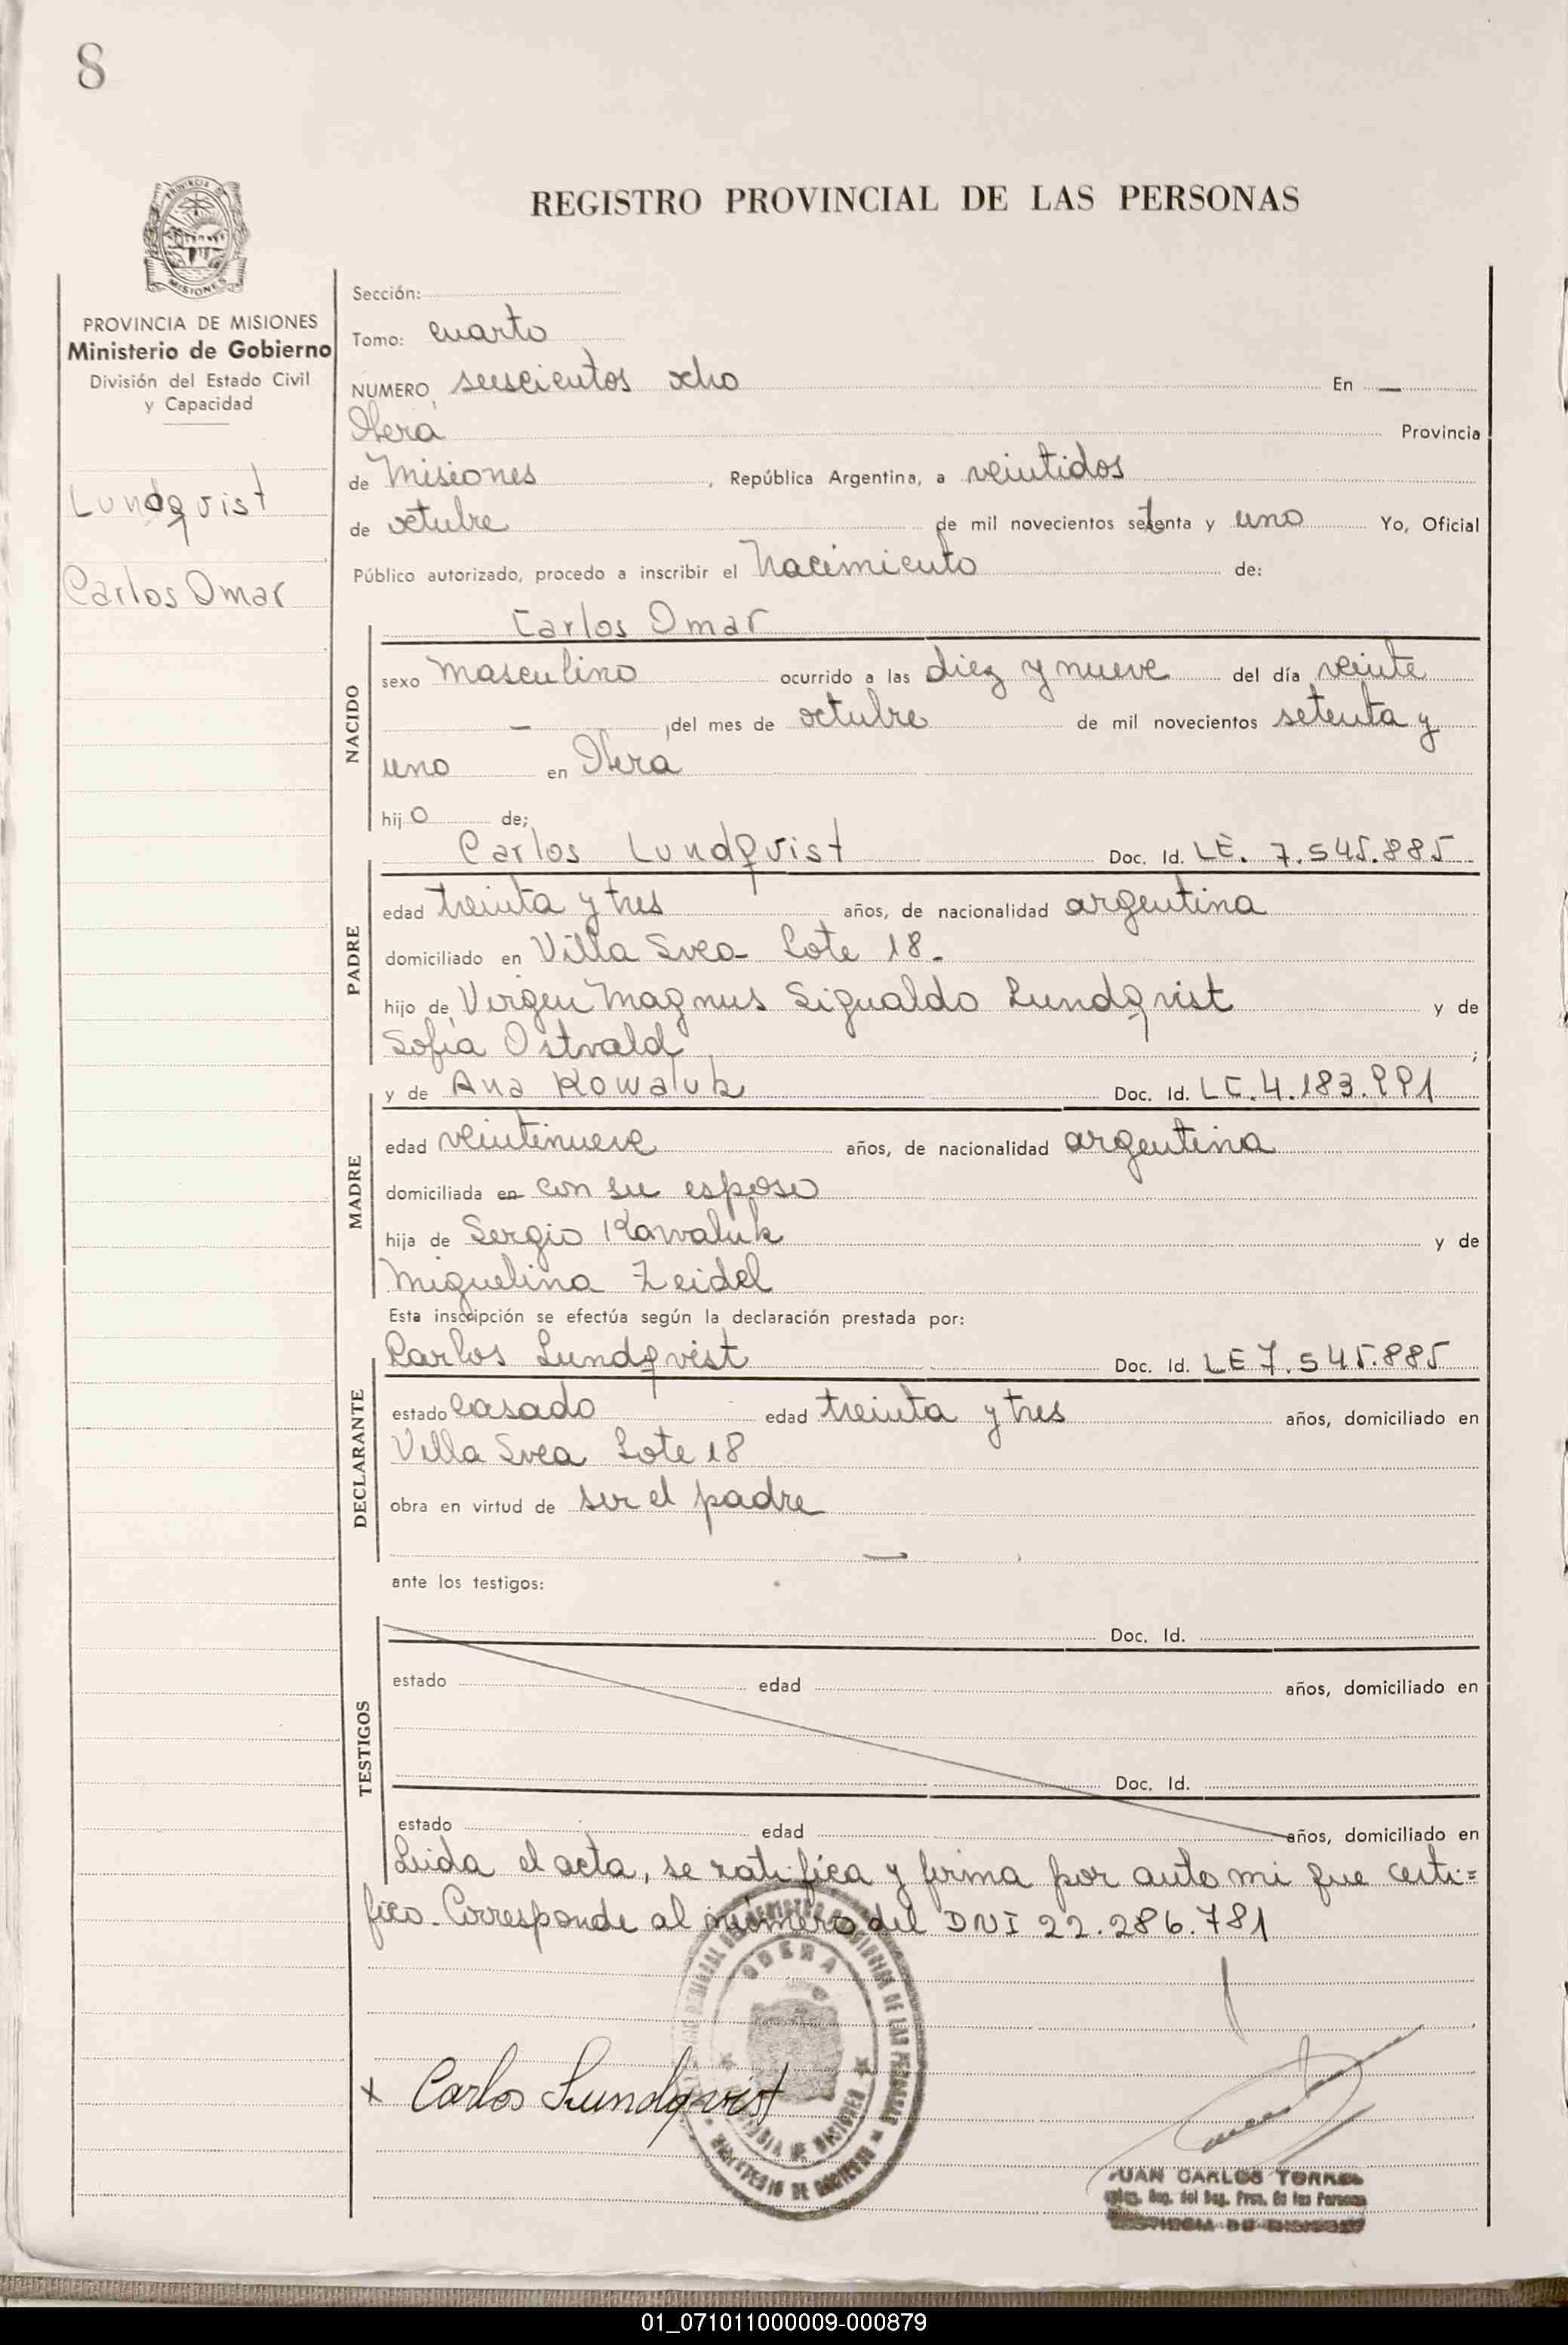 8
PROVINCIA DE
MISIONES
REGISTRO PROVINCIAL DE LAS PERSONAS
PROVINCIA DE MISIONES
Ministerio de Gobierno
División del Estado Civil
y Capacidad
Lundqvist
Carlos Omar
Sección:
Tomo: cuarto
NUMERO, seiscientos ocho En —
Oberá Provincia
de Misiones, República Argentina, a veintidos
de octubre de mil novecientos setenta y uno Yo, Oficial
Público autorizado, procedo a inscribir el Nacimiento de:
Carlos Omar
NACIDO
sexo masculino ocurrido a las diez y nueve del día veinte
— ,del mes de octubre de mil novecientos setenta y
uno en Oberá
hijo de;
PADRE
Carlos Lundqvist Doc. Id. LE. 7.545.885
edad treinta y tres años, de nacionalidad argentina
domiciliado en Villa Svea Lote 18.
hijo de Magnus Sigualdo Lundqvist y de
Sofía Ostvald ;
MADRE
y de Ana Kowaluk Doc. Id. LC. 4.183.991
edad veintinueve años, de nacionalidad argentina
domiciliada en con su esposo
hija de Sergio Kowaluk y de
Miguelina Zeidel
Esta inscripción se efectúa según la declaración prestada por:
DECLARANTE
Carlos Lundqvist Doc. Id. LE 7.545.885
estado casado edad treinta y tres años, domiciliado en
Villa Svea Lote 18
obra en virtud de ser el padre
—
ante los testigos:
TESTIGOS
Doc. Id.
estado edad años, domiciliado en
Doc. Id.
estado edad años, domiciliado en
Leida el acta, se ratifica y firma por ante mi que certi=
fico. Corresponde al número del DNI 22.286.781
OBERA
x Carlos Lundqvist
JUAN CARLOS TORRES
01_071011000009-000879